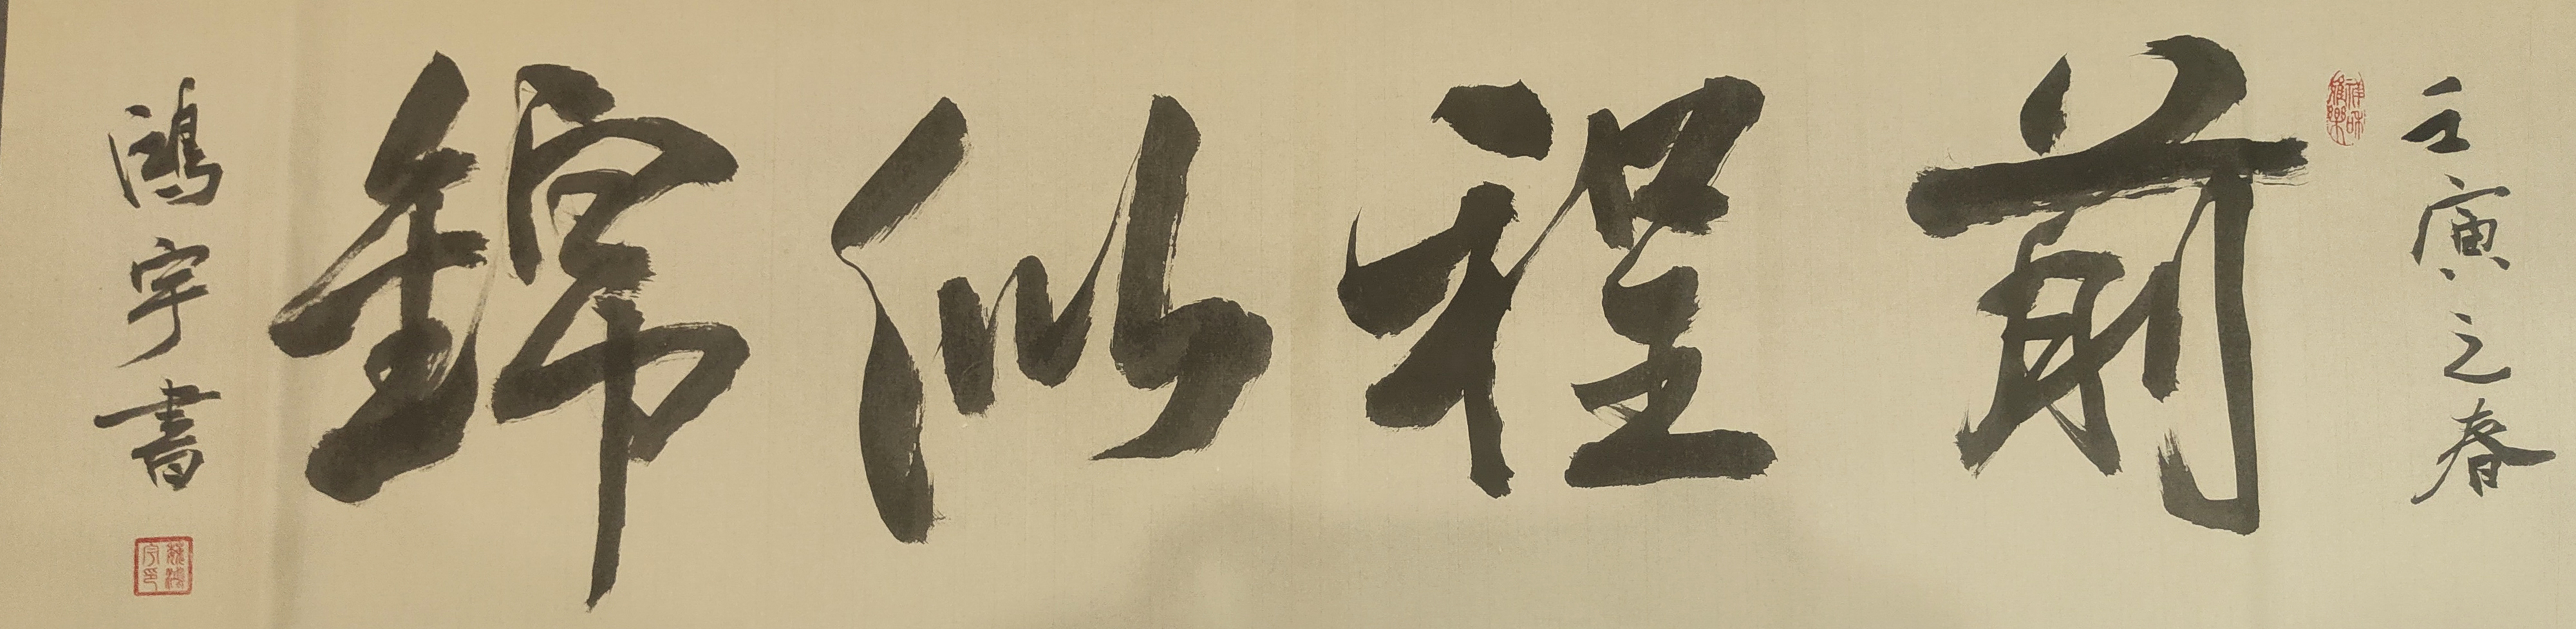 壬寅之春
前程似錦
鴻宇書